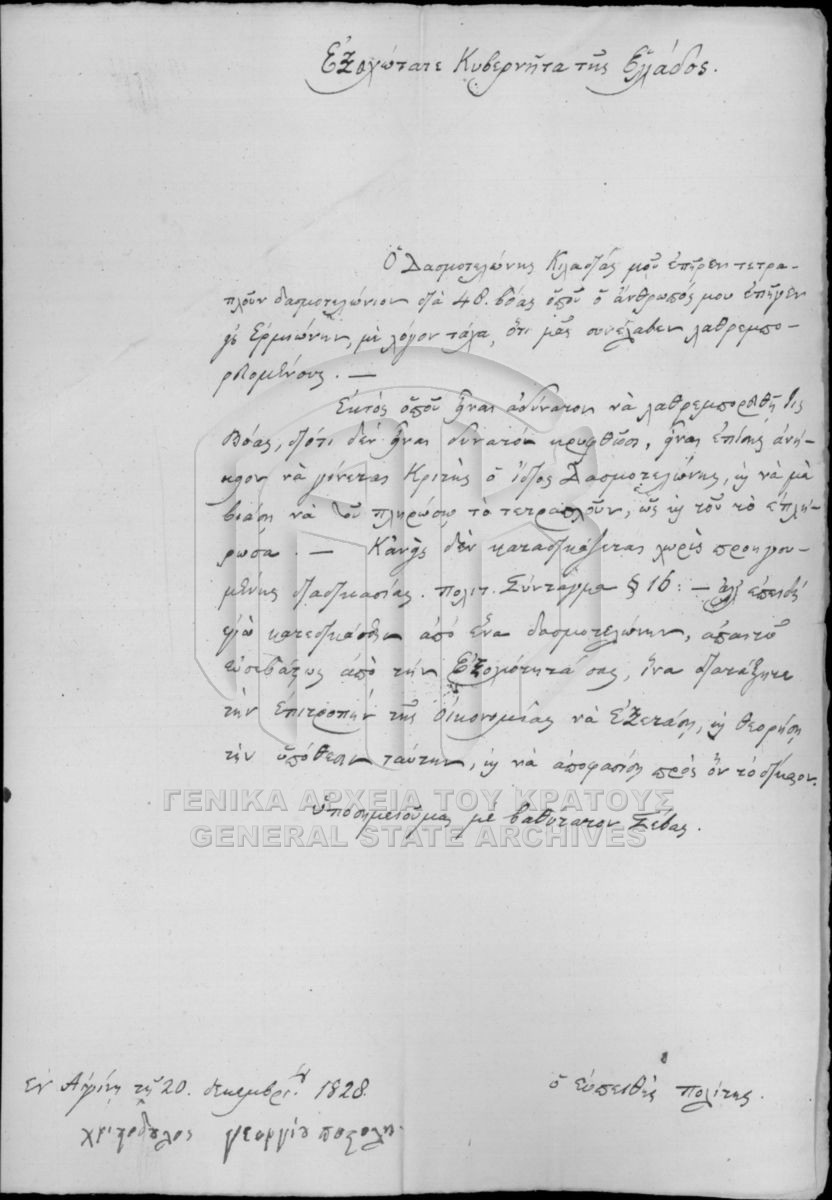 Ἐξοχώτατε Κυβερνῆτα τῆς Ἑλλάδος.
Ὁ Δασμοτελώνης Κιλαδιᾶς μοῦ ἐπῆρεν τετρα-
πλοῦν δασμοτελώνιον διὰ 48. βόας ὁποῦ ὁ ἄνθρωπός μου ἐπῆγεν
εἰς Ἑρμιώνην, μὲ λόγον τάχα, ὅτι μᾶς συνέλαβεν λαθρεμπο-
ρευομένους. —
Ἐκτὸς ὁποῦ ἦναι ἀδύνατον νὰ λαθρεμπορευθῇ τις
βόας, διότι δὲν ἦναι δυνατὸν κρυφθῶσι, ἦναι ἐπίσης ἀνή-
κηον νὰ γίνεται Κριτὴς ὁ ἴδιος Δασμοτελώνης, καὶ νὰ μὲ
βιάσῃ νὰ τοῦ πληρώσω τὸ τετραπλοῦν, ὡς καὶ τοῦ τὸ ἐπλή-
ρωσα. — Κανεὶς δὲν καταδικάζεται χωρὶς προηγου-
μένης διαδικασίας. πολιτ. Σύνταγμα § 16: — ἀλλ' ἐπειδὴ
ἐγὼ κατεδικάσθην ἀπὸ ἕνα δασμοτελώνην, ἀπαιτῶ
εὐσεβάστως ἀπὸ τὴν Ἐξοχότητά σας, ἵνα διατάξητε
τὴν Ἐπιτροπὴν τῆς Οἰκονομίας νὰ ἐξετάσῃ, καὶ θεωρήσῃ
τὴν ὑπόθεσιν ταύτην, καὶ νὰ ἀποφασίσῃ πρὸς ὃν τὸ δίκαιον.
ὑποσημειοῦμαι μὲ βαθύτατον Σέβας.
ΓΕΝΙΚΑ ΑΡΧΕΙΑ ΤΟΥ ΚΡΑΤΟΥΣ
GENERAL STATE ARCHIVES
ἐν Αἰγίνῃ τῇ 20. δεκεμβρίου 1828
ὁ εὐπειθὴς πολίτης.
χριστόδουλος γεοργίου